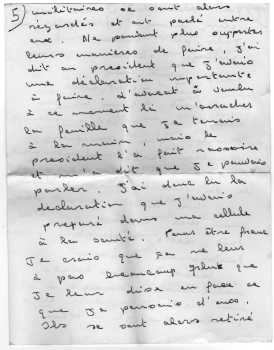 5) militaires se sont alors
regardés et ont parlé entre
eux. Ne pouvant plus supporter
leurs manières de faire, j'ai
dit au president que j'avais
une déclaration importante
à faire. d'avocat à voulu
à ce moment là m'arracher
la feuille que je tenais
à la main, mais le
president l'a fait rassoire
et m'a dit que je pouvais
parler. J'ai donc lu la
declaration que j'avais
preparé dans ma cellule
à la santé. Pour être franc
Je crois que ça ne leur
à pas beaucoup plut que
Je leur dise en face ce
que je pensais d'eux.
Ils se sont alors retiré